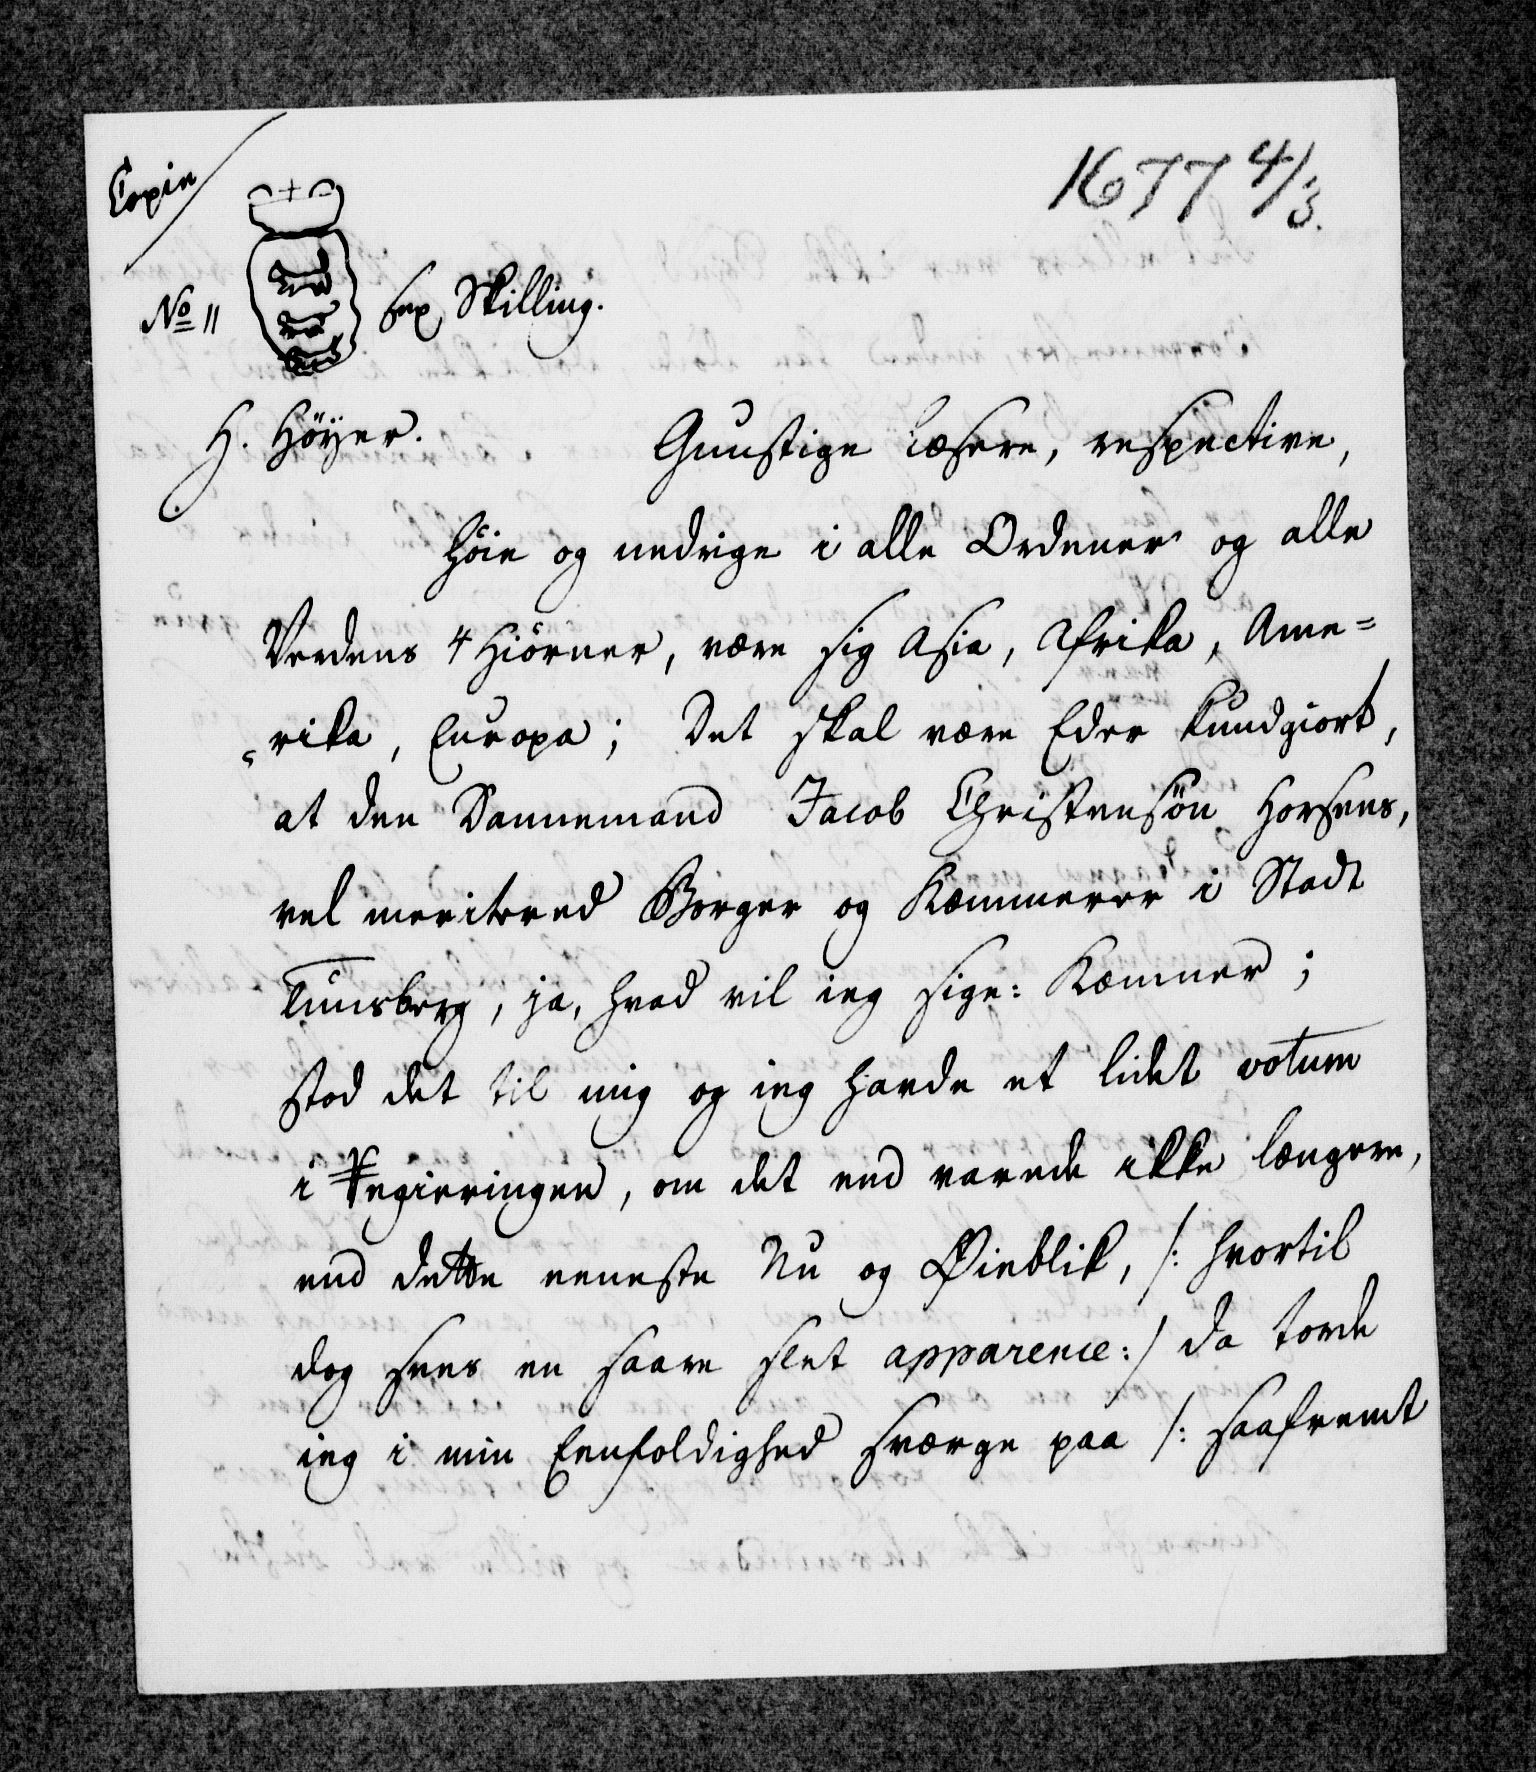 Copie
1677 4/3.
No 11 Sex Skilling.
H. Höÿer.
Gunstige Læsere, respective,
Höie og nedrige i alle Ordener og alle
Verdens 4 Hiörner, være sig Asia, Afrika, Ame=
rika, Europa; Det skal være Eder kundgiort,
at den Dannemand Jacob Christensön Horsens,
vel meritered Borger og Kæmmerer i Stadt
Tunsberg, ja, hvad vil ieg sige: Kæmner;
stod det til mig og ieg havde et lidet votum
i Regieringen, om det end varede ikke længere,
end dette eeneste Nu og Øieblik, /: hvortil
dog sees en saare slet apparence:/ da torde
ieg i min Eenfoldighed sværge paa /: saafremt